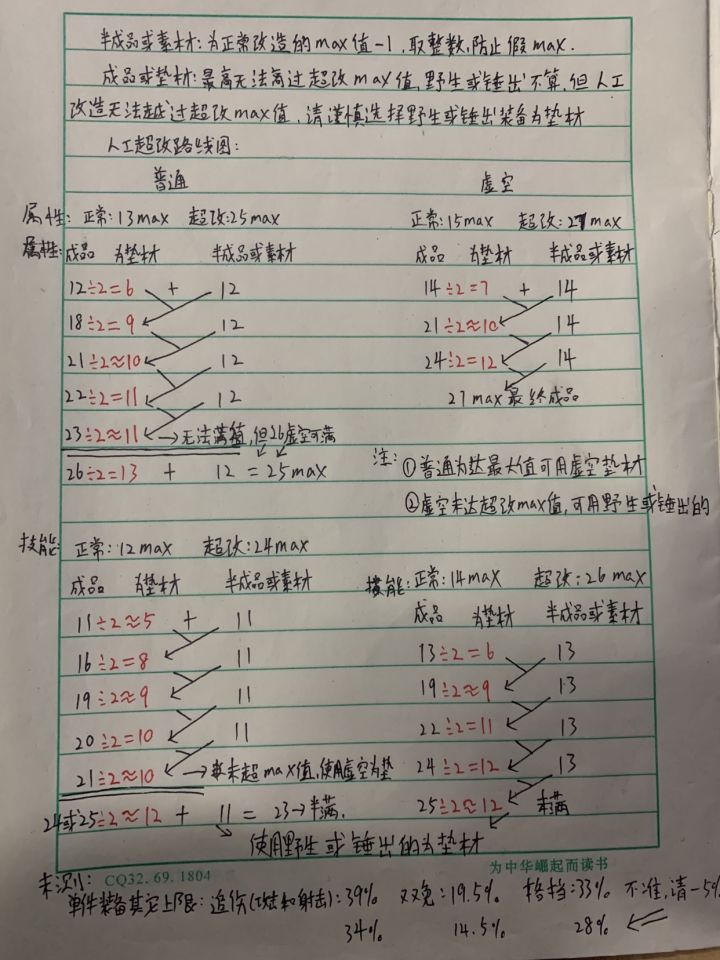 半成品或素材:为正常改造的max值-1,取整数,防止假max.
成品或垫材:最高无法高过超改max值,野生或锤出不算,但人工
改造无法越过超改max值,请谨慎选择野生或锤出装备为垫材
人工超改路线图:
普通 虚空
属性:正常:13max 超改:25max 正常:15max 超改:27max
属性:成品 为垫材 半成品或素材 成品 为垫材 半成品或素材
12÷2=6 + 12 14÷2=7 + 14
18÷2=9 12 21÷2≈10 14
21÷2≈10 12 24÷2=12 14
22÷2=11 12 27max最终成品
23÷2≈11 →无法满值,但26虚空可满
26÷2=13 + 12 = 25max
注:①普通为达最大值可用虚空垫材
②虚空未达超改max值,可用野生或锤出的
技能:正常:12max 超改:24max
技能:正常:14max 超改:26max
成品 为垫材 半成品或素材 成品 为垫材 半成品或素材
11÷2≈5 + 11 13÷2=6 13
16÷2=8 11 19÷2≈9 13
19÷2≈9 11 22÷2=11 13
20÷2=10 11 24÷2=12 13
21÷2≈10 →未超max值,使用虚空为垫 25÷2≈12 未满
24或25÷2≈12 + 11 = 23→未满.
使用野生或锤出的为垫材
为中华崛起而读书
未测: CQ32.69.1804
单件装备其它上限:追伤(攻击和射击):39% 双免:19.5% 格挡:33% 不准,请-5%
34% 14.5% 28%